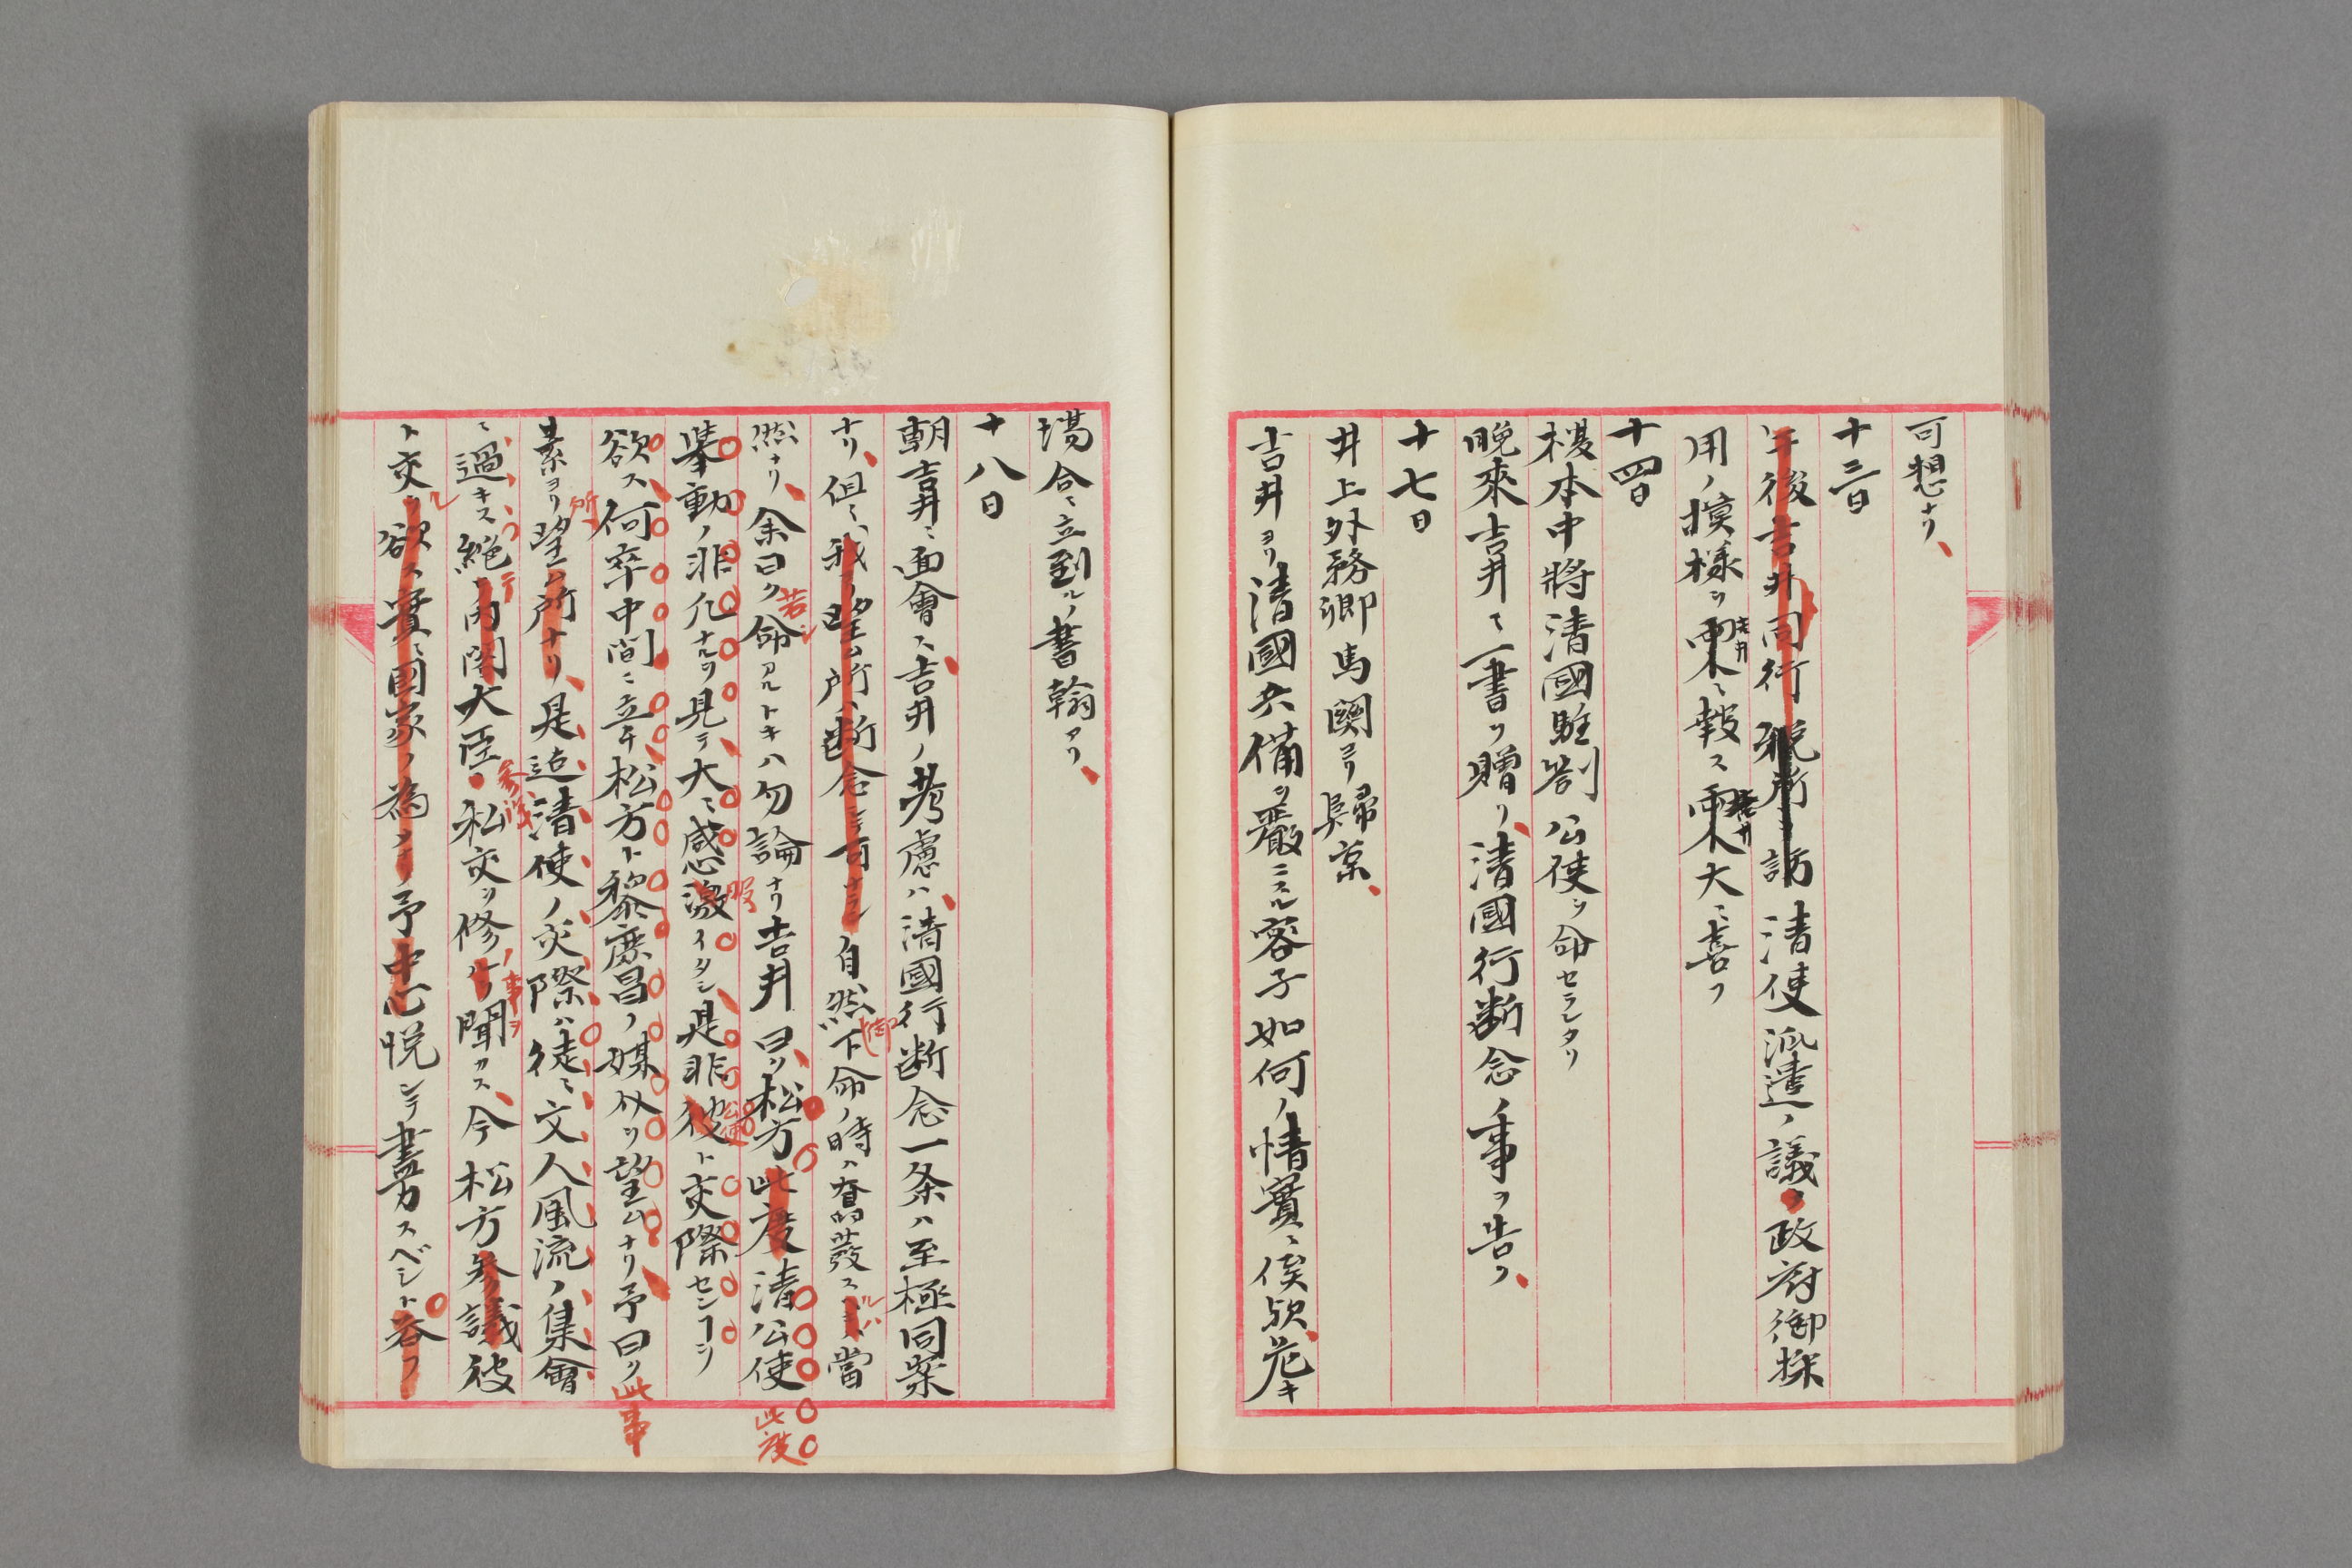 可想ナリ、
十三日
午後吉井同行税所ヲ訪清使派遣ノ議ヲ政府御採
用ノ摸様ヲ吉井ニ報ス吉井大ニ喜フ
十四日
榎本中將清國駐劄公使ヲ命セラレタリ
晩來吉井ヘ一書ヲ贈リ、清國行断念ノ事ヲ告ク、
十七日
井上外務卿馬関ヨリ歸京、
吉井ヨリ清國兵備ヲ嚴ニスル容子如何ノ情實ニ候欤、危キ
場合ニ立到ルノ書翰アリ、
十八日
朝吉井ニ面會ス、吉井ノ考慮ハ、清國行断念一条ハ至極同案
ナリ、但シ我ヨリ望ム所ハ断念ニテ可ナラン自然御下命ノ時ハ奮發スルハ當
然ナリ、余曰ク若シ命アルトキハ勿論ナリ吉井曰ク、松方此度清公使此度
挙動ノ非凡ナルヲ見テ、大ニ感激服イタシ、是非彼公使ト交際センコヲ
欲ス、何卒中間ニ立チ、松方ト黎庶昌ノ媒介ヲ望ムナリ、予曰ク此事
素ヨリ所望ム所ナリ、是迠清使ノ交際ハ徒ニ文人風流ノ集會
ニ過キス、絶テ内閣大臣、参議ノ私交ヲ修ルノ事ヲ聞カス、今松方参議彼
ト交ルヲ欲ス實ニ國家ノ為メナリ予中心悦ンテ盡力スベシト答フ